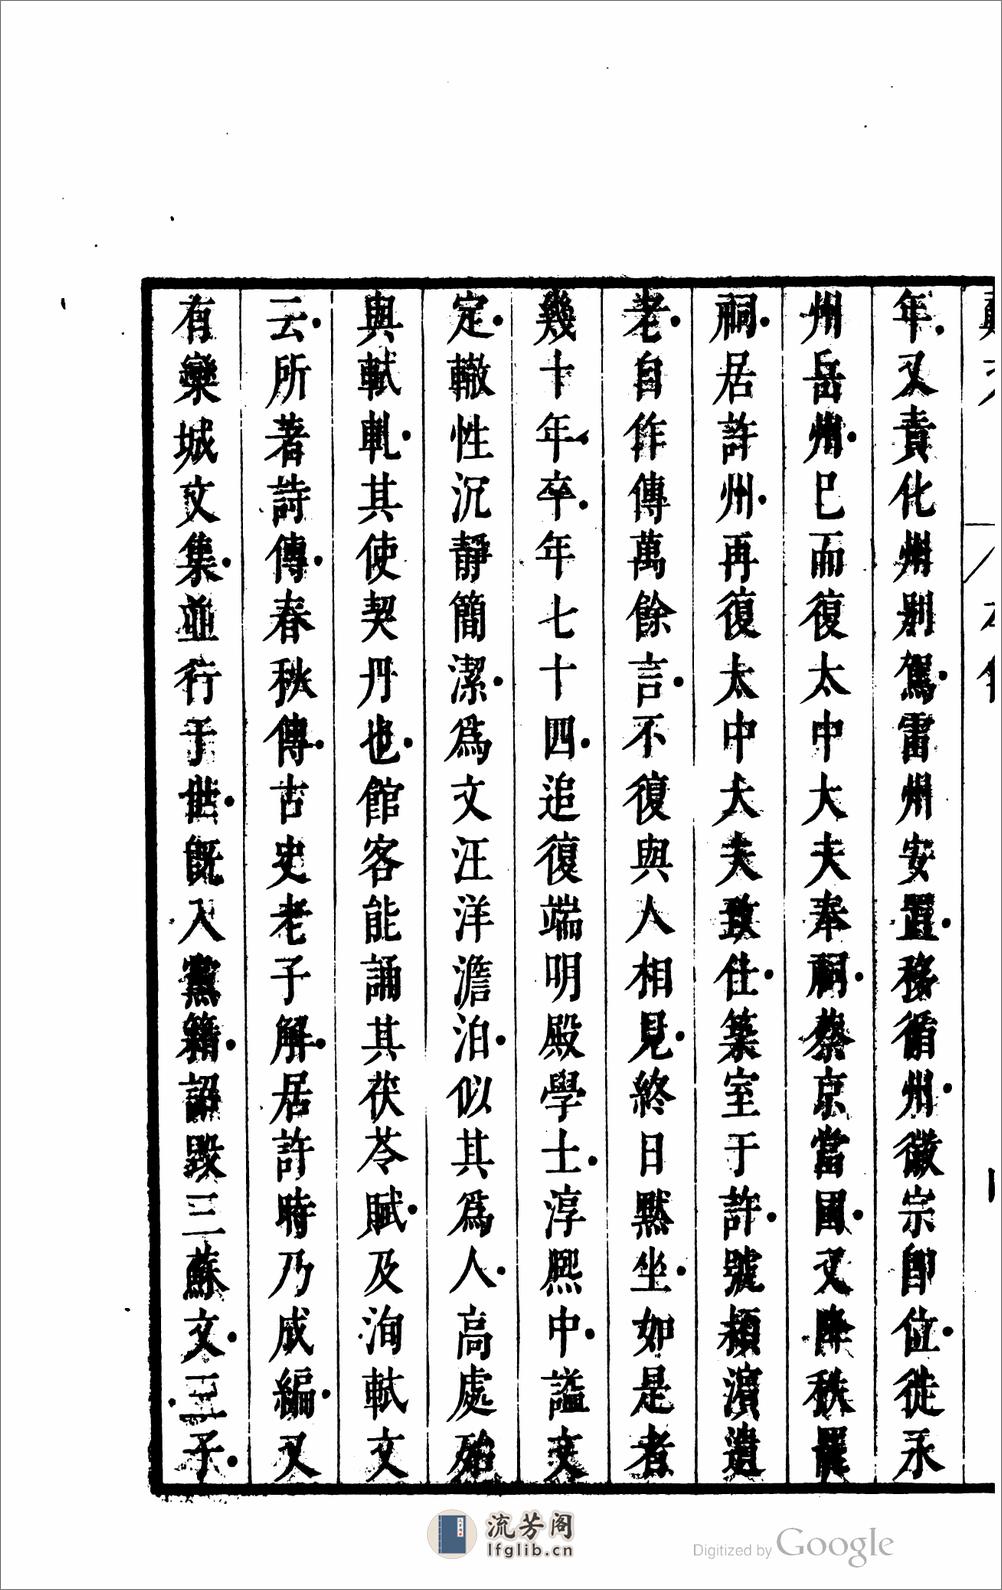 年又責化州別駕雷州安置移循州徽宗即位徙永
州岳州已而復太中大夫奉祠蔡京當國又降秩罷
祠居許州再復太中大夫致仕築室于許號潁濵遺
老自作傳萬餘言不復與人相見終日黙坐如是者
幾十年卒年七十四追復端明殿學士淳熈中謚文
定轍性沉靜簡潔爲文汪洋澹泊似其爲人高處殆
與軾軋其使契丹也館客能誦其茯苓賦及洵軾文
云所著詩傳春秋傳古史老子解居許時乃成編又
有欒城文集並行于世旣入黨籍詔毀三蘇文三子
流芳阁
lfglib.cn
Digitized by Google